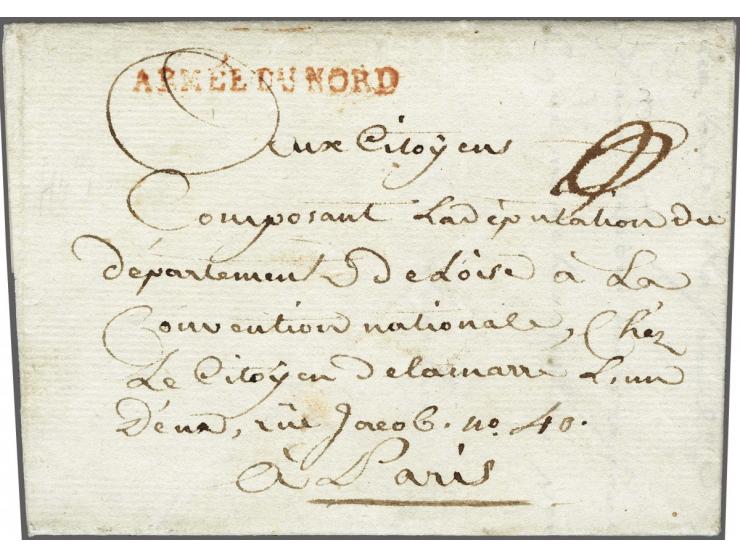 ARMÉE DU NORD
Aux Citoÿens
Composant La députation du
département De Loise à La
Convention nationale, Chéz
Le Citoÿen Delamarre L'un
D'eux, rüe Jacob. no. 40.
à Paris